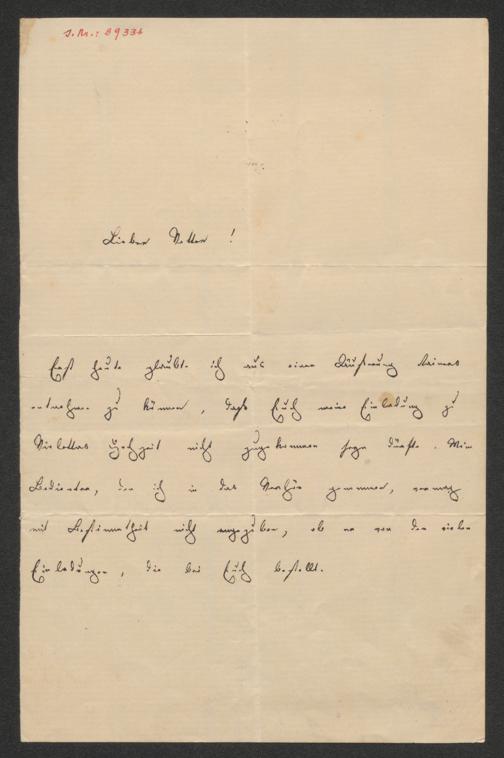 J.N.: 89336
Lieber Vetter !
Erst heute glaubte ich aus einer Äußerung Deines
entnehmen zu können, dass Euch meine Einladung zu
Violettas Hochzeit nicht zugekommen sein dürfte. Mein
Bedienter, den ich in das Verhör genommen, vermag
mit Bestimmtheit nicht anzugeben, ob er von den vielen
Einladungen, die bei Euch bestellt.